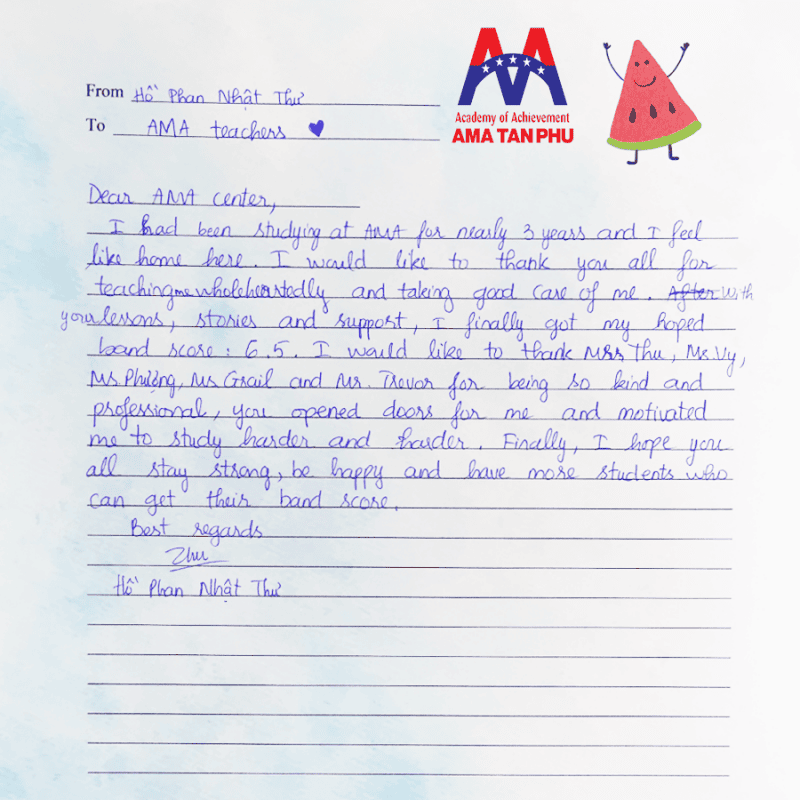 From Hồ Phan Nhật Thư
To AMA teachers
Academy of Achievement
AMA TAN PHU
Dear AMA center,
I had been studying at AMA for nearly 3 years and I feel
like home here. I would like to thank you all for
teaching me wholeheartedly and taking good care of me. After With
your lessons, stories and support, I finally got my hoped
band score: 6.5. I would like to thank Mrs Thu, Ms. Vy,
Ms. Phượng, Ms. Grail and Mr. Trevor for being so kind and
professional, you opened doors for me and motivated
me to study harder and harder. Finally, I hope you
all stay strong, be happy and have more students who
can get their band score.
Best regards
Thu
Hồ Phan Nhật Thư